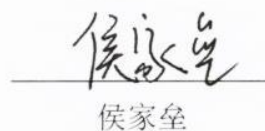 侯家垒
侯家垒